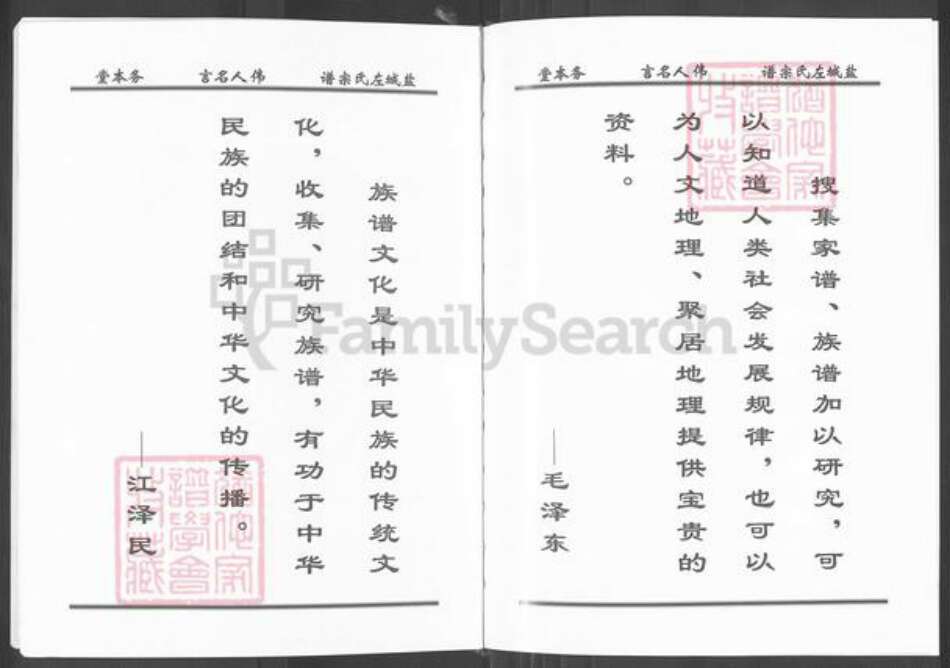 盐城左氏宗谱 伟人名言 务本堂
搜集家谱、族谱加以研究，可
以知道人类社会发展规律，也可以
为人文地理、聚居地理提供宝贵的
资料。
——毛泽东
盐城左氏宗谱 伟人名言 务本堂
族谱文化是中华民族的传统文
化，收集、研究族谱，有功于中华
民族的团结和中华文化的传播。
——江泽民
FamilySearch